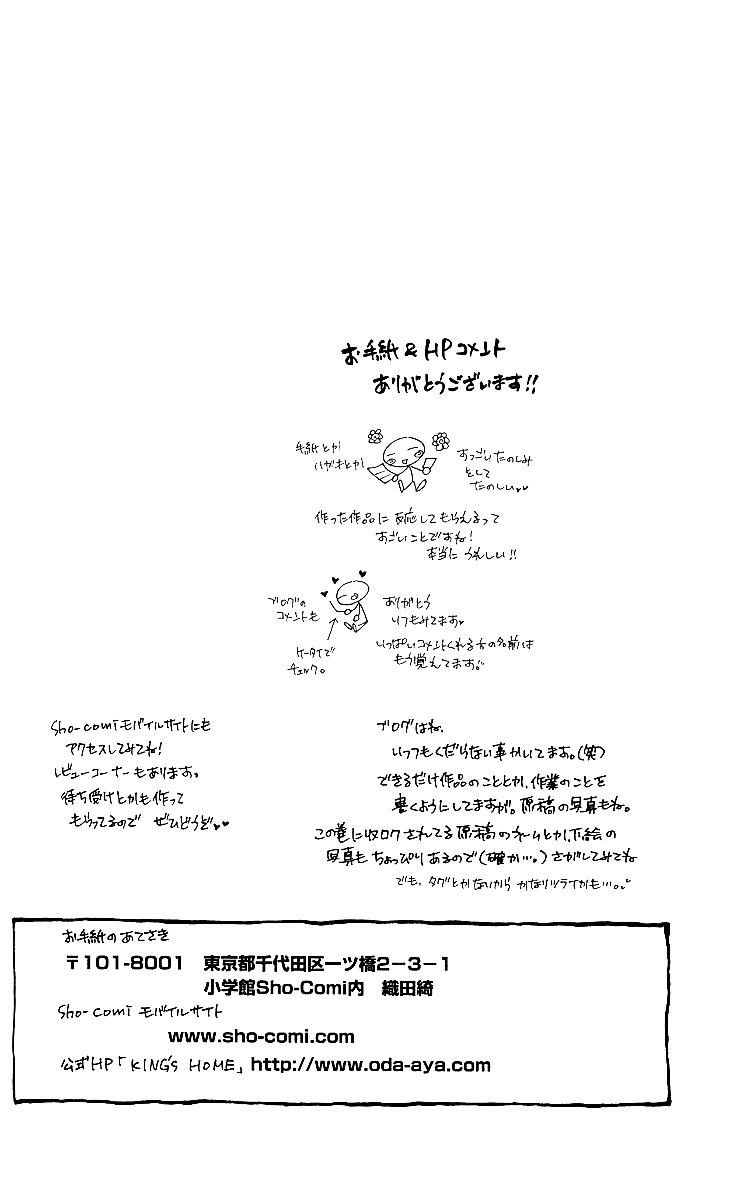 お手紙 & HPコメント
ありがとうございます!!
手紙とか
ハガキとか
すっごいたのしみ
として
たのしい♥♥
作った作品に反応してもらえるって
すごいことですね!
本当にうれしい!!
ブログの
コメントも
ありがとう
いつもみてます♥
ケータイで
チェック。
いっぱいコメントくれる方の名前は
もう覚えてます。
Sho-comiモバイルサイトにも
アクセスしてみてね!
レビューコーナーもあります。
待ち受けとかも作って
もらってるので ぜひどうぞ♥♥
ブログはね、
いっつもくだらない事かいてます。(笑)
できるだけ作品のこととか、作業のことを
書くようにしてますが。原稿の写真もね。
この巻に収ロクされてる原稿のネームとか、下絵の
写真もちょっぴりあるので(確か…。)さがしてみてね
でも、タグとかないから かなりツライかも…。
お手紙のあてさき
〒101-8001 東京都千代田区一ツ橋2-3-1
小学館Sho-Comi内 織田綺
Sho-comi モバイルサイト
www.sho-comi.com
公式HP「KING'S HOME」http://www.oda-aya.com